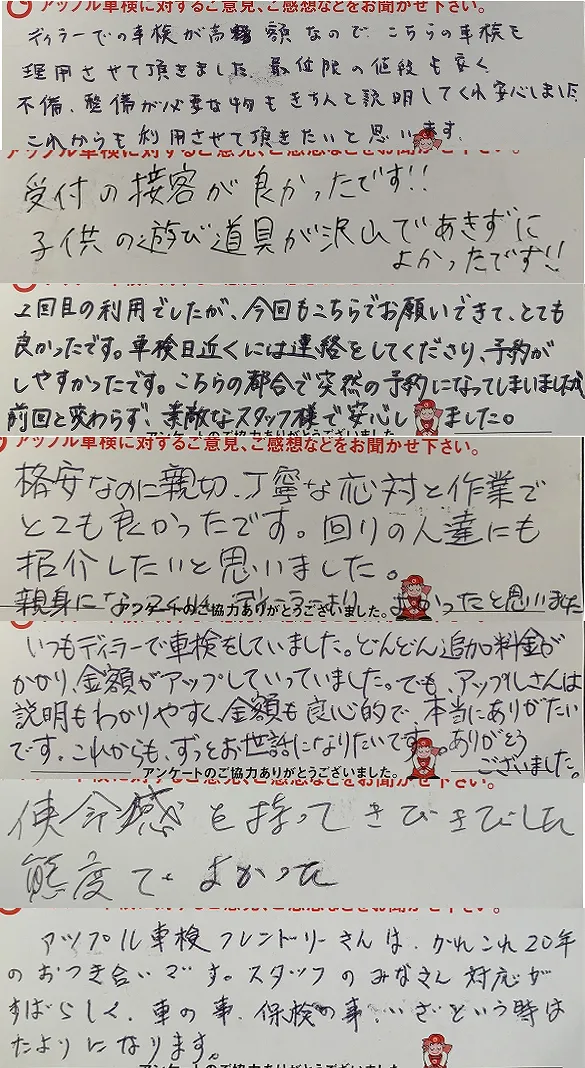 アップル車検に対するご意見、ご感想などをお聞かせ下さい。
ディラーでの車検が高額なので こちらの車検を
理用させて頂きました。最低限の値段も安く
不備、整備が必要な物もきちんと説明してくれ安心しました
これからも利用させて頂きたいと思います。
アップル車検に対するご意見、ご感想などをお聞かせ下さい。
受付の接客が良かったです!!
子供の遊び道具が沢山であきずに
よかったです!!
2回目の利用でしたが、今回もこちらでお願いできて、とても
良かったです。車検日近くには連絡をしてくださり、予約が
しやすかったです。こちらの都合で突然の予約になってしまいましたが
前回と変わらず、素敵なスタッフ様で安心しました。
アンケートのご協力ありがとうございました
アップル車検に対するご意見、ご感想などをお聞かせ下さい。
格安なのに親切、丁寧な応対と作業で
とても良かったです。回りの人達にも
招介したいと思いました。
親身になって よかったと思いました
アンケートのご協力ありがとうございました。
いつもディラーで車検をしていました。どんどん追加料金が
かかり、金額がアップしていっていました。でも、アップルさんは
説明もわかりやすく、金額も良心的で 本当にありがたい
です。これからも、ずっとお世話になりたいです。ありがとう
ございました。
アンケートのご協力ありがとうございました。
車検に対するご意見、ご感想などをお聞かせ下さい。
使命感を持ってきびきびした
態度でよかった
アップル車検フレンドリーさんは、かれこれ20年
のおつき合いです。スタッフのみなさん対応が
すばらしく、車の事、保検の事、いざという時は
たよりになります。
アンケートのご協力ありがとうございました